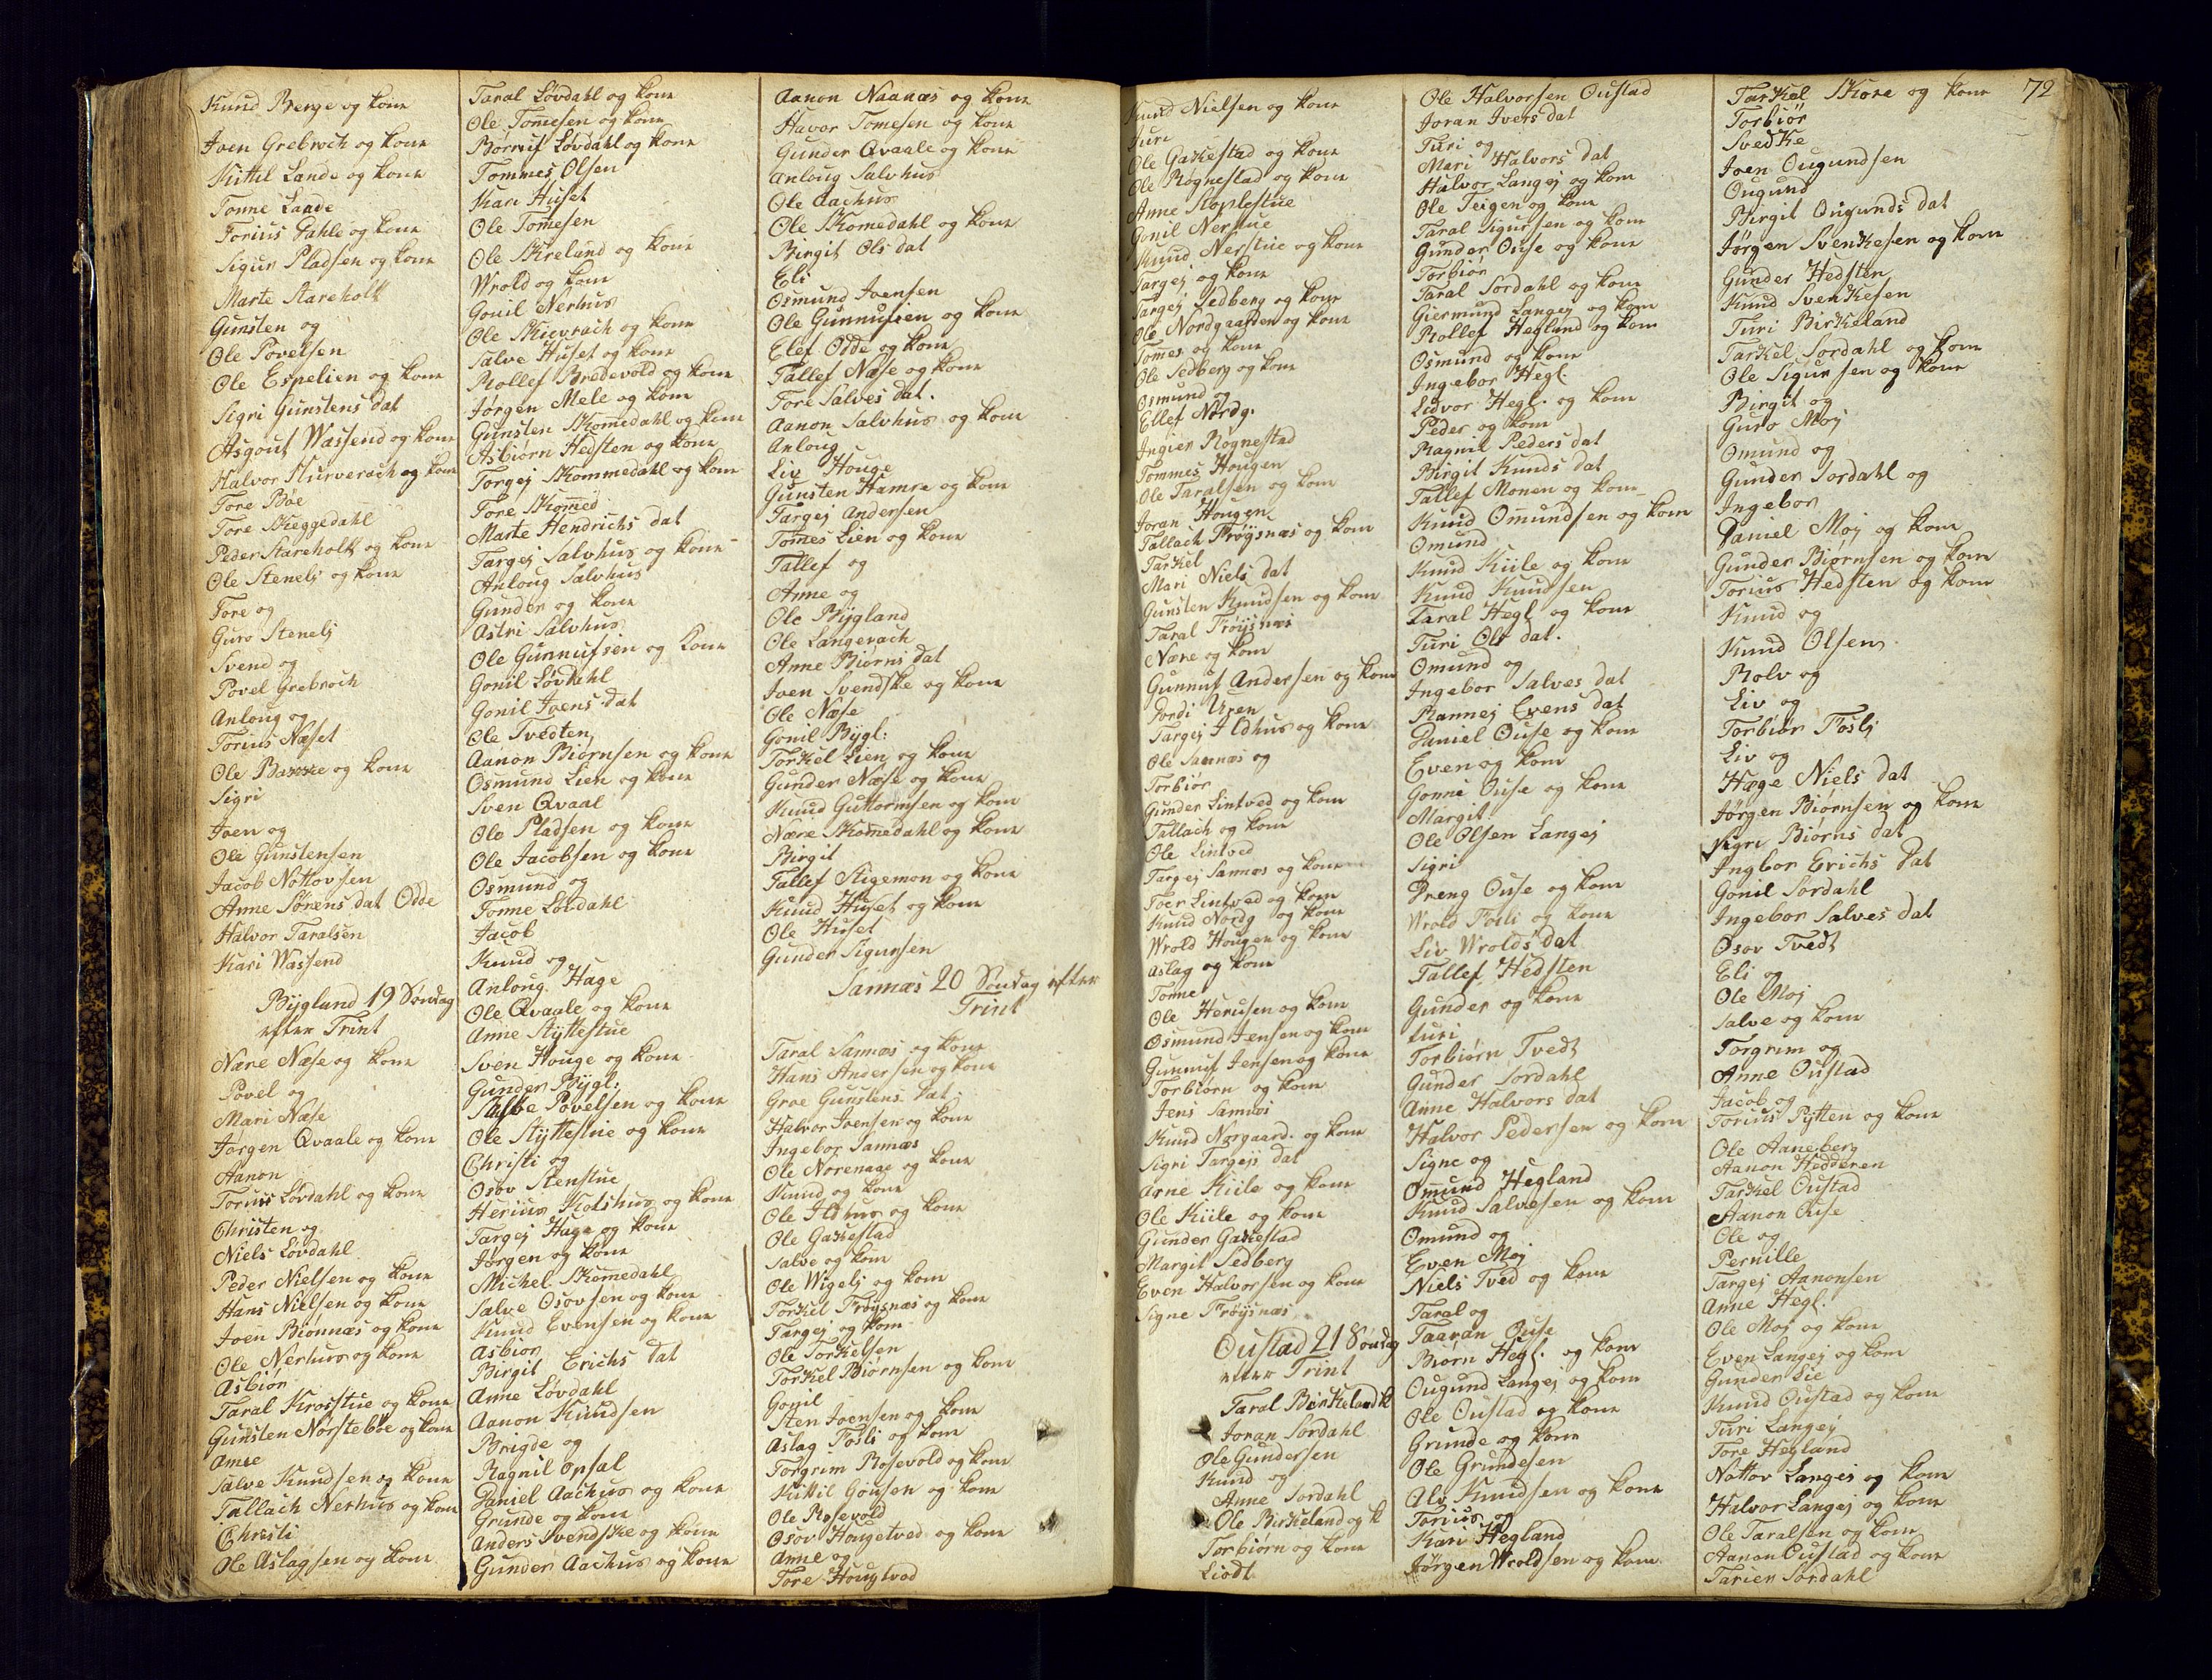 Knud Berge og kone
Joen Grebroch og kone
Kittil Lande og kone
Tonne Laade
Torius Dahle og kone
Sigur Pladsen og kone
Marte Stareholt
Gunsten og
Ole Povelsen
Ole Espelien og kone
Sigri Gunstens dat
Asgout Wassend og kone
Halvor Hurverach og kone
Tore Böe
Tore Skeggedahl
Peder Stareholt og kone
Ole Stenelj og kone
Tore og
Guro Stenelj
Svend og
Povel Grebroch
Anloug og
Torius Næset
Ole Bakke og kone
Sigri
Joen og
Ole Gunstensen
Jacob Nottovsen
Anne Sörens dat Odde
Halvor Taralsen
Kari Wassend
Bÿgland 19 Söndag
efter Trint
Nære Næse og kone
Povel og
Mari Næse
Jörgen Qvaale og kone
Aanon
Torius Lövdahl og kone
Christen og
Niels Lövdahl
Peder Nielsen og kone
Hans Nielsen og kone
Joen Biönnæs og kone
Ole Nerhus og kone
Asbiör
Taral Krosstue og kone
Gunsten Nörsteböe og kone
Anne
Salve Knudsen og kone
Tallach Nerhus og kone
Christi
Ole Aslagsen og kone
Taral Lövdahl og kone
Ole Tomesen og kone
Börruf Lövdahl og kone
Tommes Olsen
Kari Huset
Ole Tomesen
Ole Skreland og kone
Wrold og kone
Gonil Nerhus
Ole Skievrach og kone
Salve Huset og kone
Rollef Bredevold og kone
Jörgen Mele og kone
Gunsten Skomedahl og kone
Asbiörn Hedsten og kone
Torgej Skommedahl og kone
Tore Skomed
Marte Hendrichs dat
Targej Salvhus og kone
Anloug Salvhus
Gunder og kone
Astri Salvhus
Ole Gunnufsen og kone
Gonil Lövdahl
Gonil Joens dat
Ole Tvedten
Aanon Biörnsen og kone
Osmund Lien og kone
Sven Qvaal
Ole Pladsen og kone
Ole Jacobsen og kone
Osmund og
Tonne Lövdahl
Jacob
Knud og
Anloug Hage
Ole Qvaale og kone
Anne Stÿttestue
Sven Houge og kone
Gunder Bÿgl:
Povelsen og kone
Ole Stÿttestue og kone
Christi og
Osov Stenstue
Herius Kotshus og kone
Targej Hage og kone
Jörgen og kone
Michel Skomedahl
Salve Osovsen og kone
Knud Evensen og kone
Asbiör
Birgit Erichs dat
Anne Lövdahl
Aanon Knudsen
Brigde og
Ragnil Opsal
Daniel Aachus og kone
Grunde og kone
Anders Svendske og kone
Gunder Aachus og kone
Aanon Naanæs og kone
Havor Tomesen og kone
Gunder Qvaale og kone
Anloug Salvhus
Ole Aachus
Ole Skomedahl og kone
Birgit Ols dat
Eli
Osmund Joensen
Ole Gunnufsen og kone
Elef Odde og kone
Tallef Næse og kone
Tore Salves dat.
Aanon Salvhus og kone
Anloug
Liv Houge
Gunsten Hamre og kone
Targej Andersen
Tomes Lien og kone
Tallef og
Anne og
Ole Bÿgland
Ole Langerach
Anne Biörns dat
Joen Svendske og kone
Ole Næse
Gonil Bÿgl:
Torkel Lien og kone
Gunder Næse og kone
Knud Guttormsen og kone
Nære Skomedahl og kone
Birgit
Tallef Stigemon og kone
Knud Huset og kone
Ole Huset
Gunder Sigursen
Sannæs 20 Söndag efter
Trint
Taral Sannæs og kone
Hans Andersen og kone
Groe Gunstens dat
Halvor Joensen og kone
Ingebor Sannæs
Ole Norenaae og kone
Knud og kone
Ole Ildhus og kone
Ole Gakestad
Salve og kone
Ole Wigelj og kone
Torkel Fröÿsnæs og kone
Targej og kone
Ole Torkelsen
Torkel Biörnsen og kone
Gonil
Sten Joensen og kone
Aslag Fosli og kone
Torgrim Rosevold og kone
Kittil Gousen og kone
Ole Rosevold
Osov Hougetved og kone
Anne og
Tore Hougtved
72
Knud Nielsen og kone
Juri
Ole Gakestad og kone
Ole Rognestad og kone
Anne Stoplestue
Gonil Nerstue
Knud Nerstue og kone
Targej og kone
Targej Sedberg og kone
Ole Nordgaarden og kone
Tomes og kone
Ole Sedberg og kone
Osmund og
Ellef Nordg.
Ingier Rognestad
Tommes Hougen
Ole Taralsen og kone
Joran Hougen
Tallach Fröÿsnæs og kone
Tarkel
Mari Niels dat
Gunsten Knudsen og kone
Taral Fröÿsnæs
Nære og kone
Gunnuf Andersen og kone
Jordi Uren
Targej Ildhus og kone
Ole Sannæs og
Torbiör
Gunder Lintved og kone
Tallach og kone
Ole Lintved
Targej Sannæs og kone
Toer Lintved og kone
Knud Nordg og kone
Wrold Hougen og kone
Aslag og kone
Tonne
Ole Heriusen og kone
Osmund Jensen og kone
Gunnuf Jensen og kone
Torbiörn og kone
Jens Sannæs
Knud Norgaard. og kone
Sigri Targejs dat
Arne Kiile og kone
Ole Kiile og kone
Gunder Gakestad
Margit Sedberg
Even Halvorsen og kone
Signe Fröÿsnæs
Oustad 21 Söndag
efter Trint
Taral Birkeland k
Joran Sordahl
Ole Gundersen
Knud og
Anne Sordahl
Ole Birkeland og k
Torbiörn og kone
Liödt
Ole Halvorsen Oustad
Joran Ivers dat
Turi og
Mari Halvors dat
Halvor Langej og kone
Ole Teigen og kone
Taral Sigursen og kone
Gunder Ouse og kone
Torbiör
Taral Sordahl og kone
Giermund Langej og kone
Rollef Hegland og kone
Osmund og kone
Ingebor Hegl.
Lidvor Hegl. og kone
Peder og kone
Ragnil Peders dat
Birgit Knuds dat
Tallef Monen og kone
Knud Omundsen og kone
Omund
Knud Kiile og kone
Knud Knudsen
Taral Hegl og kone
Turi Ols dat.
Omund og
Ingebor Salves dat
Rannej Evens dat
Daniel Ouse og kone
Even og kone
Gonne Ouse og kone
Margit
Ole Olsen Langej
Sigri
Dreng Ouse og kone
Wrold Fosli og kone
Liv Wrolds dat
Tallef Hedsten
Gunder og kone
Turi
Torbiörn Tvedt
Gunder Sordahl
Anne Halvors dat
Halvor Pedersen og kone
Signe og
Omund Hegland
Knud Salvesen og kone
Omund og
Even Moj
Niels Tved og kone
Taral og
Taaran Ouse
Biörn Hegl. og kone
Ougund Langej og kone
Ole Oustad og kone
Grunde og kone
Ole Grundesen
Alv Knudsen og kone
Torius og
Kari Hegland
Jörgen Wroldsen og kone
Tarkel Skore og kone
Torbiör
Svedke
Joen Ougundsen
Ougund
Birgit Ougunds dat
Jörgen Svenkesen og kone
Gunder Hedsten
Knud Svenkesen
Turi Birkeland
Tarkel Sordahl og kone
Ole Sigursen og kone
Birgit og
Guro Moj
Omund og
Gunder Sordahl og
Ingebor
Daniel Moj og kone
Gunder Biörnsen og kone
Torius Hedsten og kone
Knud og
Knud Olsen
Rolv og
Liv og
Torbiör Foslj
Liv og
Hæge Niels dat
Jörgen Biörnsen og kone
Sigri Biörns dat
Ingbor Erichs dat
Gonil Sordahl
Ingebor Salves dat
Osov Tvedt
Eli og
Ole Moj
Salve og kone
Torgrim og
Anne Oustad
Jacob og
Torius Pÿtten og kone
Ole Aaneberg
Aanon Hedderen
Tarkel Oustad
Aanon Ouse
Ole og
Pernille
Targej Aanonsen
Anne Hegl.
Ole Moj og kone
Even Langej og kone
Gunder Lie
Knud Oustad og kone
Turi Langej
Tore Hegland
Nottov Langej og kone
Halvor Langej og kone
Ole Taralsen og kone
Aanon Oustad og kone
Tarier Sordahl